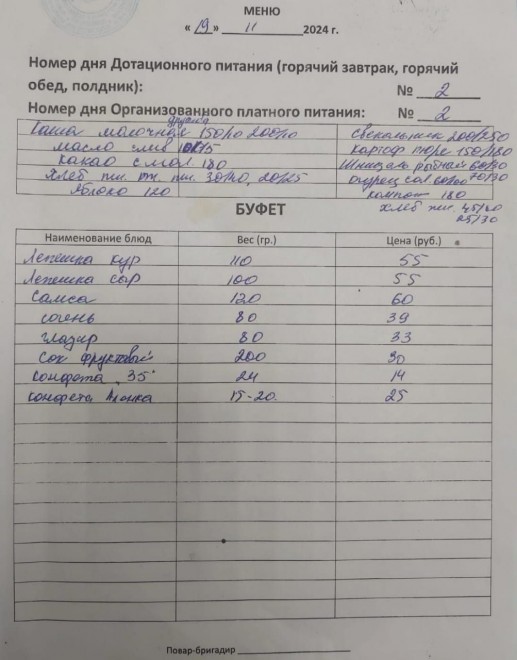 МЕНЮ
« 19 » 11 2024 г.
Номер дня Дотационного питания (горячий завтрак, горячий
обед, полдник): № 2
Номер дня Организованного платного питания: № 2
Каша молочная дружба 150/10 200/10 Свекольник 200/250
масло слив 10/15 картоф пюре 150/180
какао с мол 180 Шницель рыбный 60/90
Хлеб пш. рж. пш. 30/40, 20/25 огурец сол 60/100 70/30
яблоко 120 компот 180
хлеб пш. 45/60
25/30
БУФЕТ
Наименование блюд Вес (гр.) Цена (руб.)
Лепешка кур 110 55
Лепешка сыр 100 55
Самса 120 60
сочень 80 39
глазир 80 33
Сок фруктовый 200 30
Конфета "35" 24 14
конфета Аленка 15-20 25
Повар-бригадир